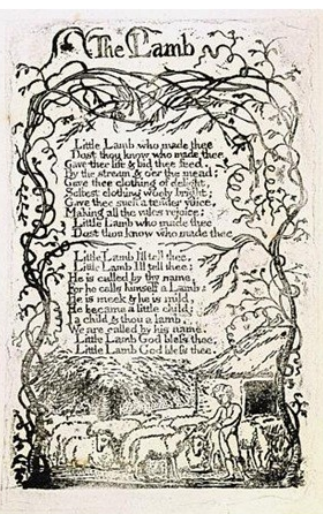 The Lamb
Little Lamb who made thee
Dost thou know who made thee
Gave thee life & bid thee feed.
By the stream & o'er the mead;
Gave thee clothing of delight,
Softest clothing wooly bright;
Gave thee such a tender voice,
Making all the vales rejoice;
Little Lamb who made thee
Dost thou know who made thee
Little Lamb I'll tell thee,
Little Lamb I'll tell thee;
He is called by thy name,
For he calls himself a Lamb:
He is meek & he is mild,
He became a little child:
I a child & thou a lamb,
We are called by his name.
Little Lamb God bless thee,
Little Lamb God bless thee.